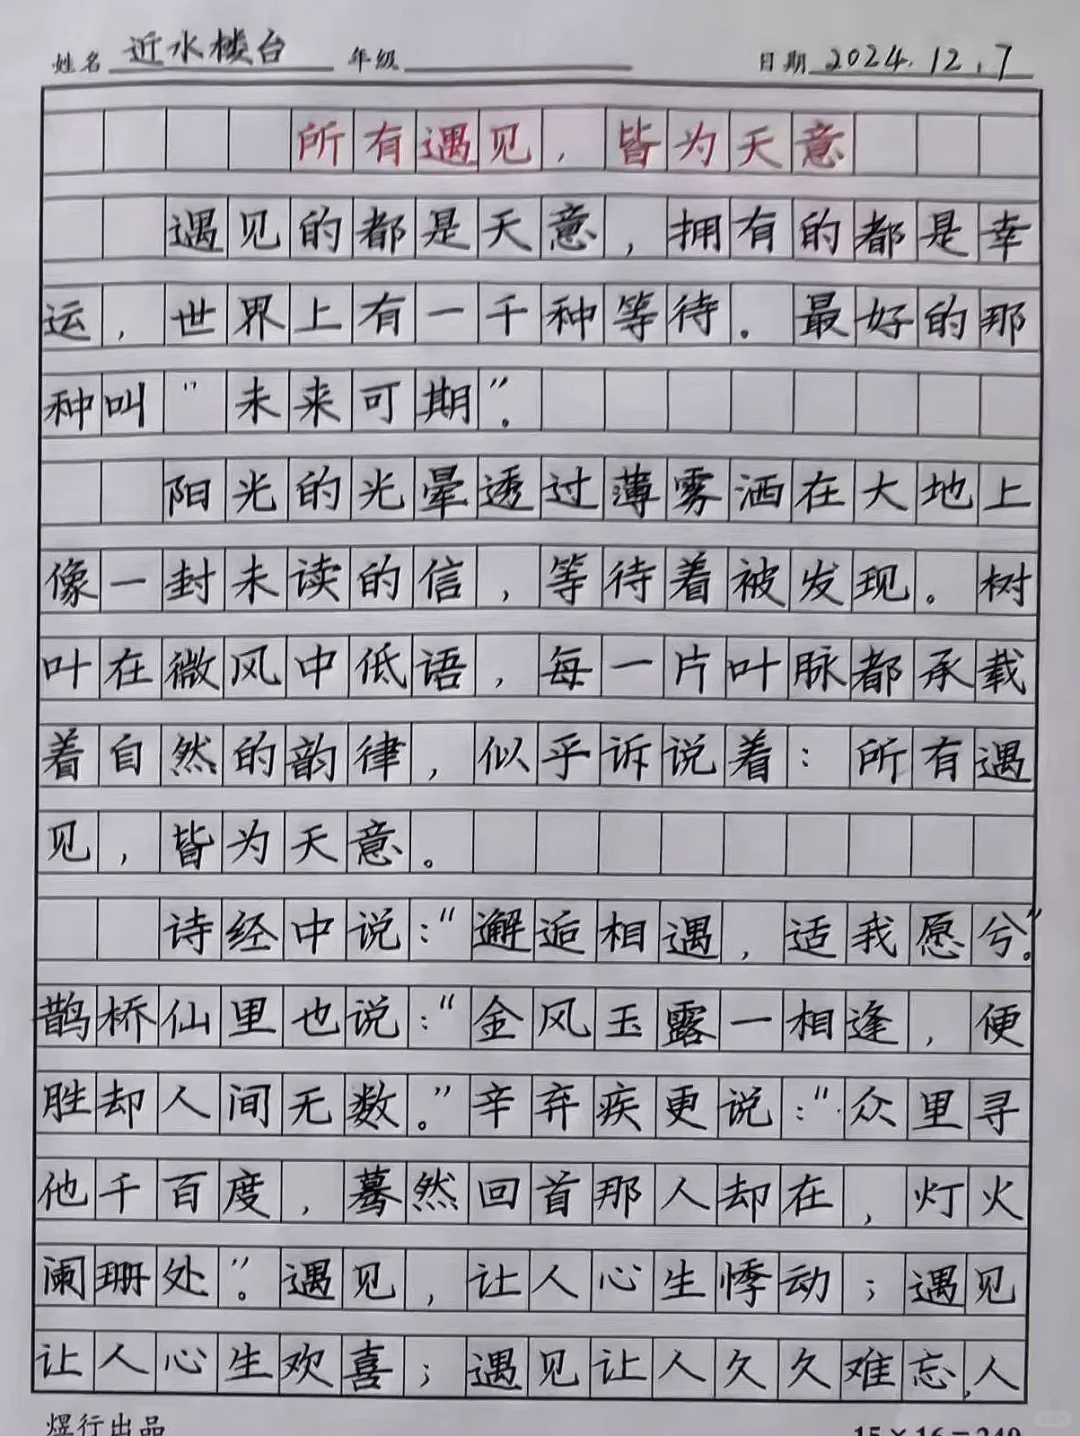 姓名 近水楼台 年级 日期 2024.12.7
所有遇见，皆为天意
遇见的都是天意，拥有的都是幸
运，世界上有一千种等待。最好的那
种叫"未来可期"。
阳光的光晕透过薄雾洒在大地上
像一封未读的信，等待着被发现。树
叶在微风中低语，每一片叶脉都承载
着自然的韵律，似乎诉说着：所有遇
见，皆为天意。
诗经中说："邂逅相遇，适我愿兮。"
鹊桥仙里也说："金风玉露一相逢，便
胜却人间无数。"辛弃疾更说："众里寻
他千百度，蓦然回首那人却在，灯火
阑珊处"。遇见，让人心生悸动；遇见
让人心生欢喜；遇见让人久久难忘,人
煜行出品 15×16=240